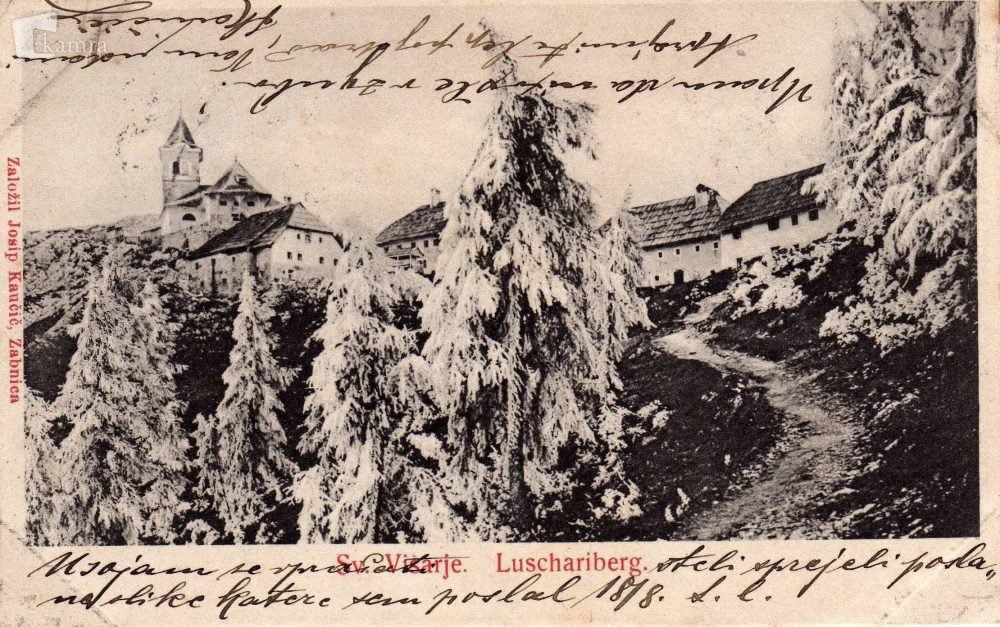 kamra
Založil Josip Kaučič, Zabnica
Sv. Višarje. Luschariberg.
Usojam se vprašati steli sprejeli posla„
ne slike katere sem poslal 18/8. t. l.
Upam da
Sprejmite lep pozdrav,